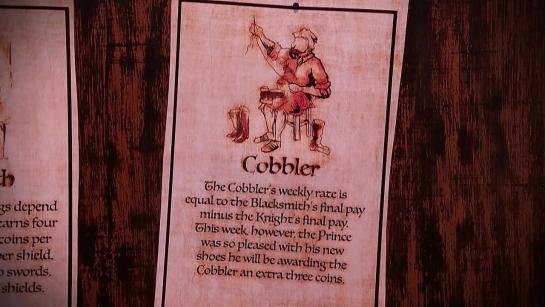 th
gs depend
earns four
coins per
per shield.
o swords,
shields.
Cobbler
The Cobbler's weekly rate is
equal to the Blacksmith's final pay
minus the Knight's final pay.
This week, however, the Prince
was so pleased with his new
shoes he will be awarding the
Cobbler an extra three coins.